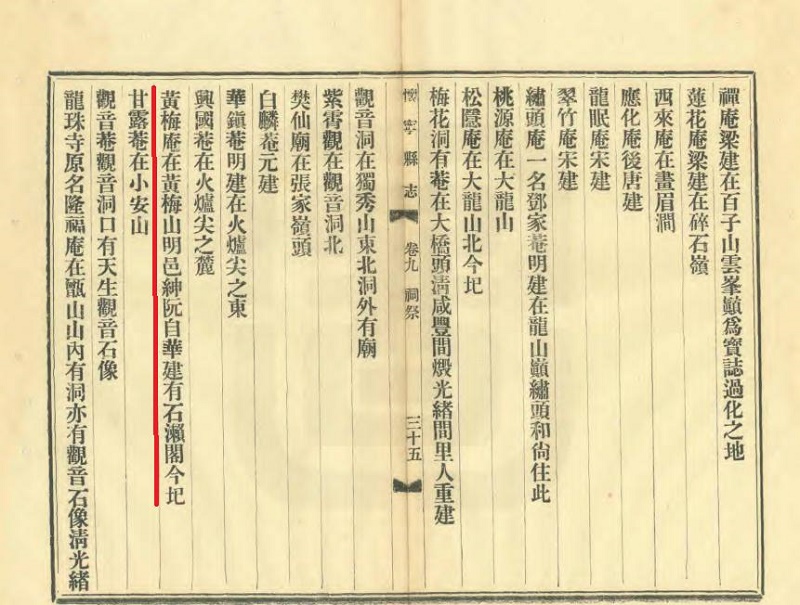 禪庵梁建在百子山雲峯巓爲寶誌過化之地
蓮花庵梁建在碎石嶺
西來庵在畫眉澗
應化庵後唐建
龍眠庵宋建
翠竹庵宋建
繡頭庵一名鄧家菴明建在龍山巓繡頭和尙住此
桃源庵在大龍山
松隱庵在大龍山北今圮
梅花洞有菴在大橋頭淸咸豐間燬光緖間里人重建
懷寧縣志
卷九 祠祭
三十五
觀音洞在獨秀山東北洞外有廟
紫霄觀在觀音洞北
樊仙廟在張家嶺頭
白麟菴元建
華鎭菴明建在火爐尖之東
興國菴在火爐尖之麓
黃梅庵在黃梅山明邑紳阮自華建有石瀨閣今圮
甘露菴在小安山
觀音菴觀音洞口有天生觀音石像
龍珠寺原名隆福庵在甑山山內有洞亦有觀音石像淸光緖